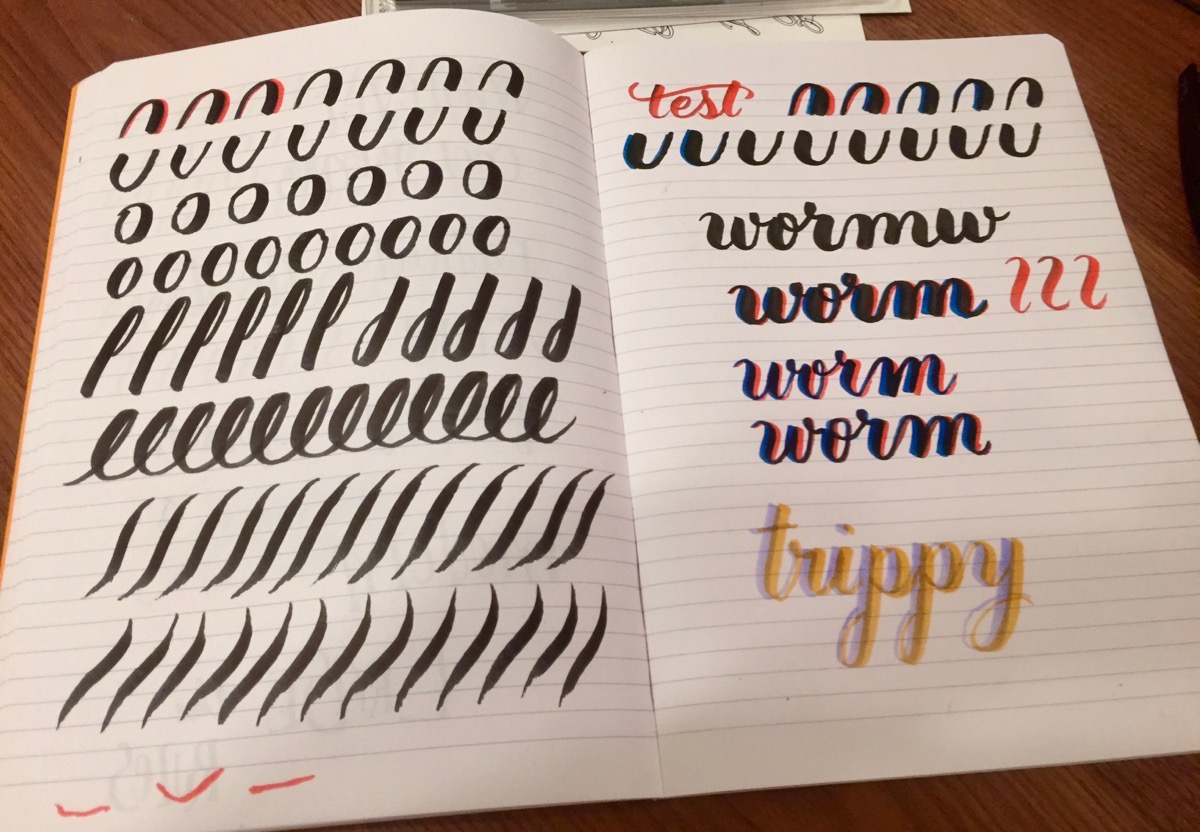 test
wormw
worm
worm
worm
trippy